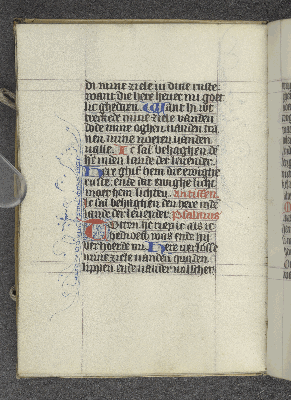 di mine ziele in dine ruste
want die here hevet mi goet
lic ghedaen. Want hi
mine ziele van den
dode mine oghen van den tra
nen mine voeten van den
valle. Ic sal behaghen de
he in den lande der levender.
Here ghif hem die ewighe
ruste. ende dat ewighe licht
moet hem lichten. antiffen.
Ic sal behaghen den here in de
lande der levender. Psalmus
Totten here riep ic als ic
bedroeft was ende hi
verhoerde mi. Here verlosse
mine ziele van den quaden
lippen. ende van der valscher